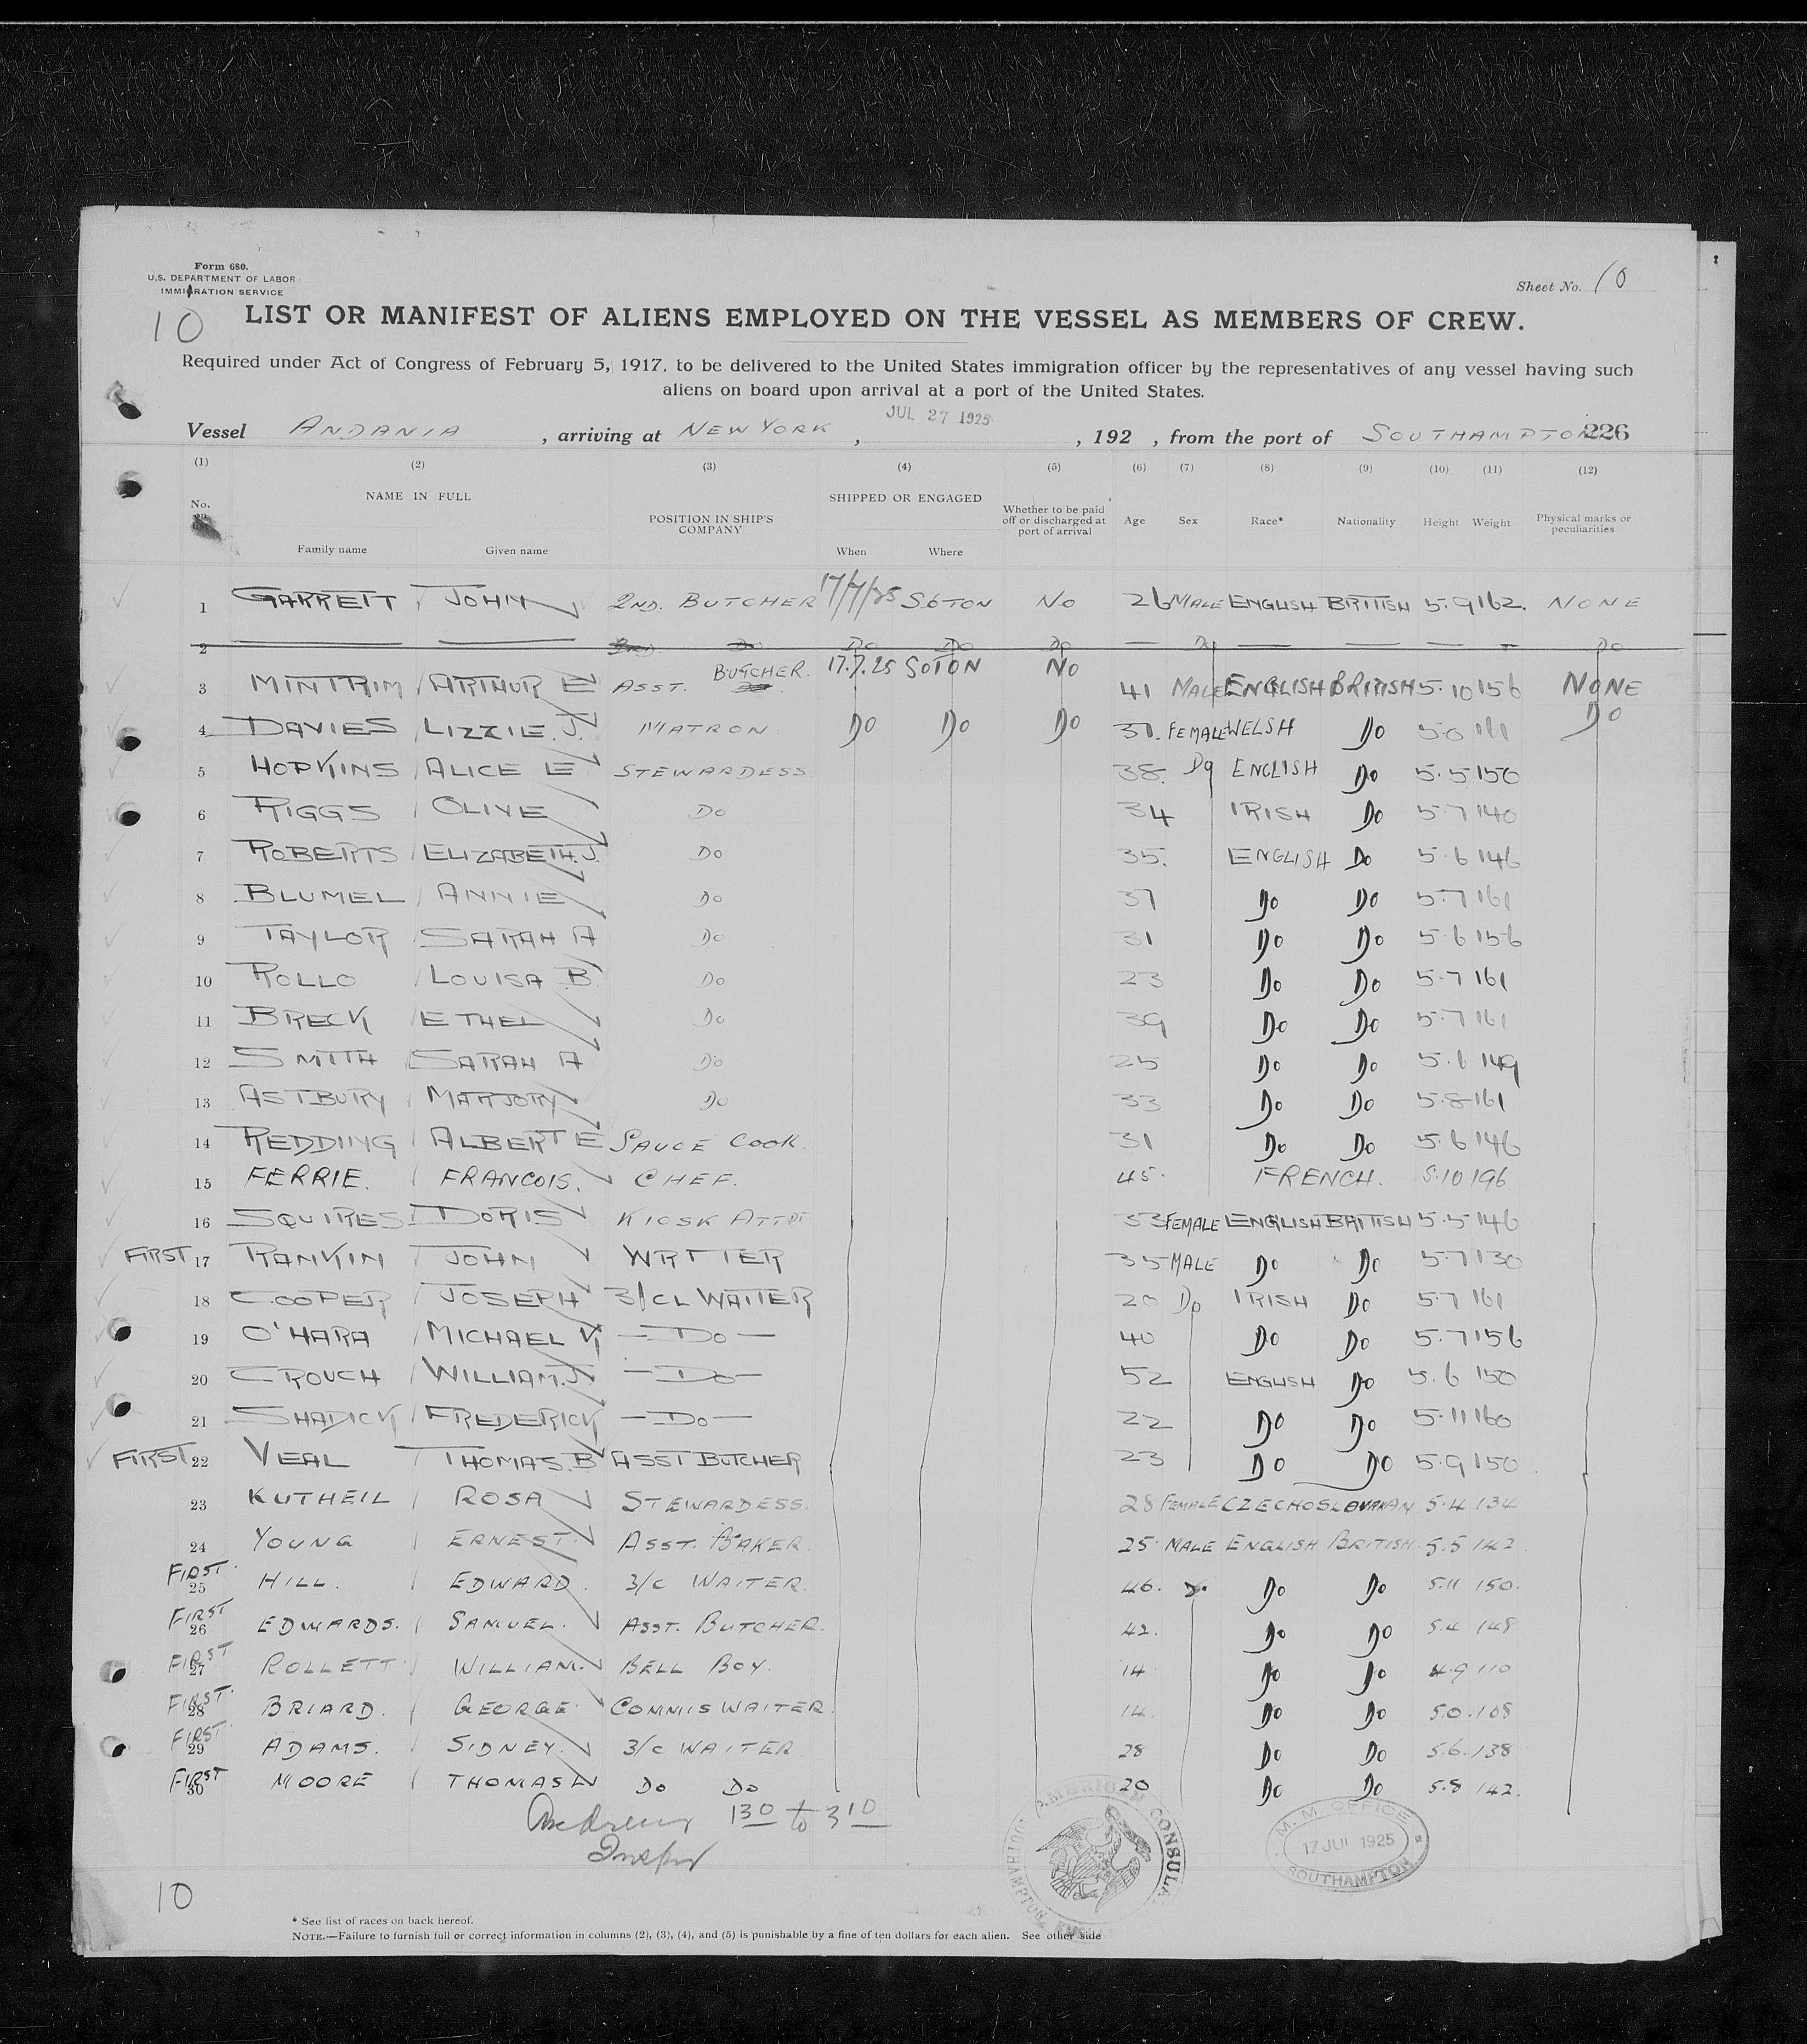 Form 680.
U.S. DEPARTMENT OF LABOR
IMMIGRATION SERVICE
Sheet No. 10
10
LIST OR MANIFEST OF ALIENS EMPLOYED ON THE VESSEL AS MEMBERS OF CREW.
Required under Act of Congress of February 5, 1917, to be delivered to the United States immigration officer by the representatives of any vessel having such
aliens on board upon arrival at a port of the United States.
JUL 27 1925
Vessel ANDANIA , arriving at NEW YORK , , 192 , from the port of SOUTHAMPTON 226
(1) (2) (3) (4) (5) (6) (7) (8) (9) (10) (11) (12)
No. on list NAME IN FULL Family name Given name POSITION IN SHIP'S COMPANY SHIPPED OR ENGAGED When Where Whether to be paid off or discharged at port of arrival Age Sex Race* Nationality Height Weight Physical marks or peculiarities
1 GARRETT JOHN 2ND. BUTCHER 17/7/25 S'OTON NO 26 MALE ENGLISH BRITISH 5.9 162. NONE
2 Do Do Do Do Do Do
3 MINTRIM ARTHUR E ASST. BUTCHER. 17.7.25 SOTON NO 41 MALE ENGLISH BRITISH 5.10 156 NONE
4 DAVIES LIZZIE. J. MATRON Do Do Do 31. FEMALE WELSH Do 5.0 161 Do
5 HOPKINS ALICE E STEWARDESS 38. Do ENGLISH Do 5.5 150
6 RIGGS OLIVE Do 34 IRISH Do 5.7 140
7 ROBERTS ELIZABETH. J. Do 35. ENGLISH Do 5.6 146
8 BLUMEL ANNIE Do 37 Do Do 5.7 161
9 TAYLOR SARAH A Do 31 Do Do 5.6 156
10 ROLLO LOUISA B. Do 23 Do Do 5.7 161
11 BRECK ETHEL Do 39 Do Do 5.7 161
12 SMITH SARAH A Do 25 Do Do 5.6 149
13 ASTBURY MARJORY Do 33 Do Do 5.8 161
14 REDDING ALBERT E SAUCE COOK. 31 Do Do 5.6 146
15 FERRIE. FRANCOIS. CHEF. 45. FRENCH. 5.10 196
16 SQUIRES DORIS KIOSK ATTDT 33 FEMALE ENGLISH BRITISH 5.5 146
FIRST 17 RANKIN JOHN WRITER 35 MALE Do Do 5.7 130
18 COOPER JOSEPH 3/CL WAITER 20 Do IRISH Do 5.7 161
19 O'HARA MICHAEL V —Do— 40 Do Do 5.7 156
20 CROUCH WILLIAM. J. —Do— 52 ENGLISH Do 5.6 150
21 SHADICK FREDERICK —Do— 22 Do Do 5.11 160
FIRST 22 VEAL THOMAS. B ASST BUTCHER 23 Do Do 5.9 150
23 KUTHEIL ROSA STEWARDESS. 28 FEMALE CZECHOSLOVAKIAN 5.4 134
24 YOUNG ERNEST. ASST. BAKER. 25. MALE ENGLISH BRITISH. 5.5 142.
FIRST. 25 HILL. EDWARD. 3/C WAITER. 46. Do Do Do 5.11 150.
FIRST 26 EDWARDS. SAMUEL. ASST. BUTCHER. 42. Do Do 5.4 148
FIRST 27 ROLLETT WILLIAM. BELL BOY. 14 Do Do 4.9 110
FIRST. 28 BRIARD. GEORGE. COMMIS WAITER. 14. Do Do 5.0. 108
FIRST. 29 ADAMS. SIDNEY. 3/C WAITER. 28 Do Do 5.6. 138
FIRST 30 MOORE THOMAS W Do Do 20 Do Do 5.8 142.
130 to 310
Inspr
AMERICAN CONSULA SOUTHAMPTON
M. M. OFFICE
17 JUL 1925
SOUTHAMPTON
10
* See list of races on back hereof.
NOTE.—Failure to furnish full or correct information in columns (2), (3), (4), and (5) is punishable by a fine of ten dollars for each alien. See other side